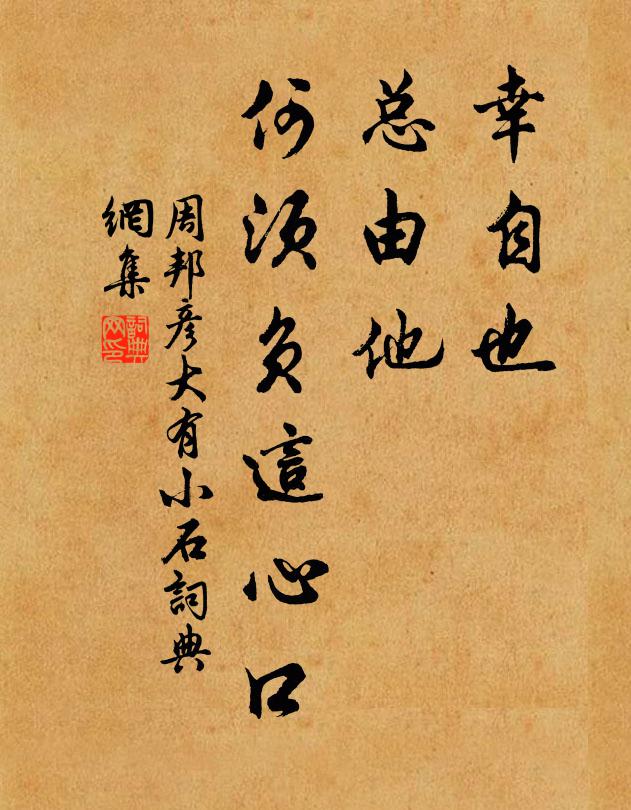 幸自也
总由他
何须负這心口
周邦彦大有小石詞典
網集
詞典網印